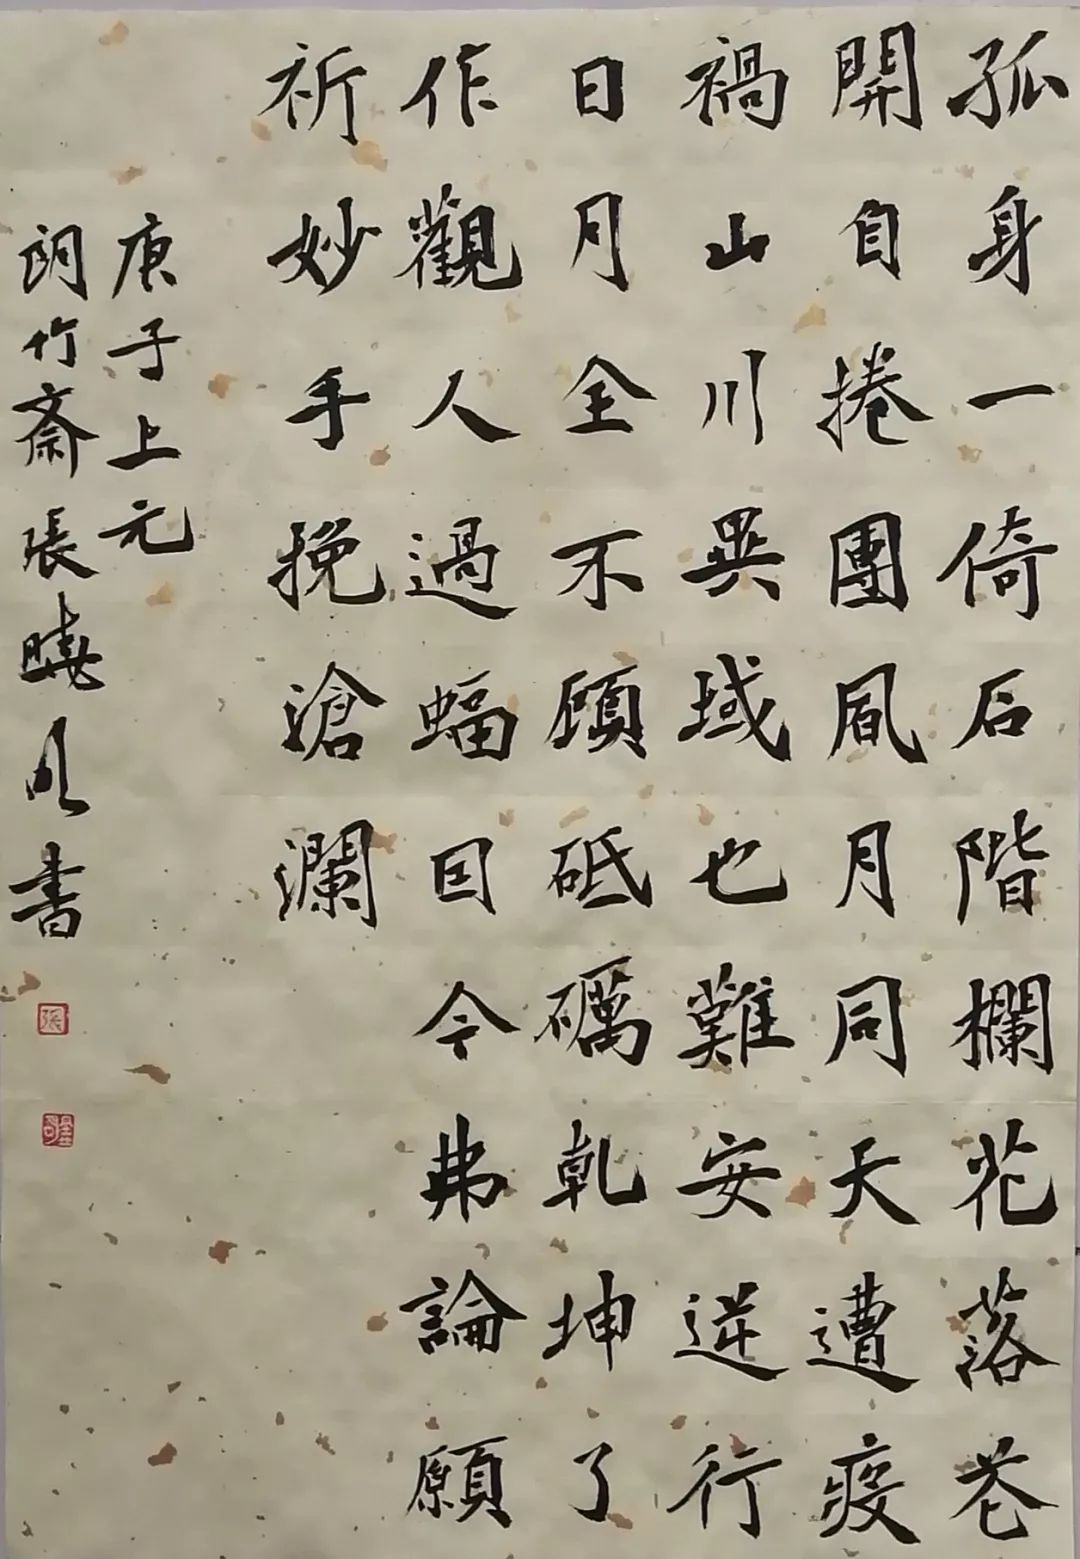 孤身一倚石階欄花落花
開自捲團風月同天遭疫
禍山川異域也難安逆行
日月全不顧砥礪乾坤了
作觀人過蝠囙今弗論願
祈妙手挽滄瀾
庚子上元
朗竹斎張曉明書
張